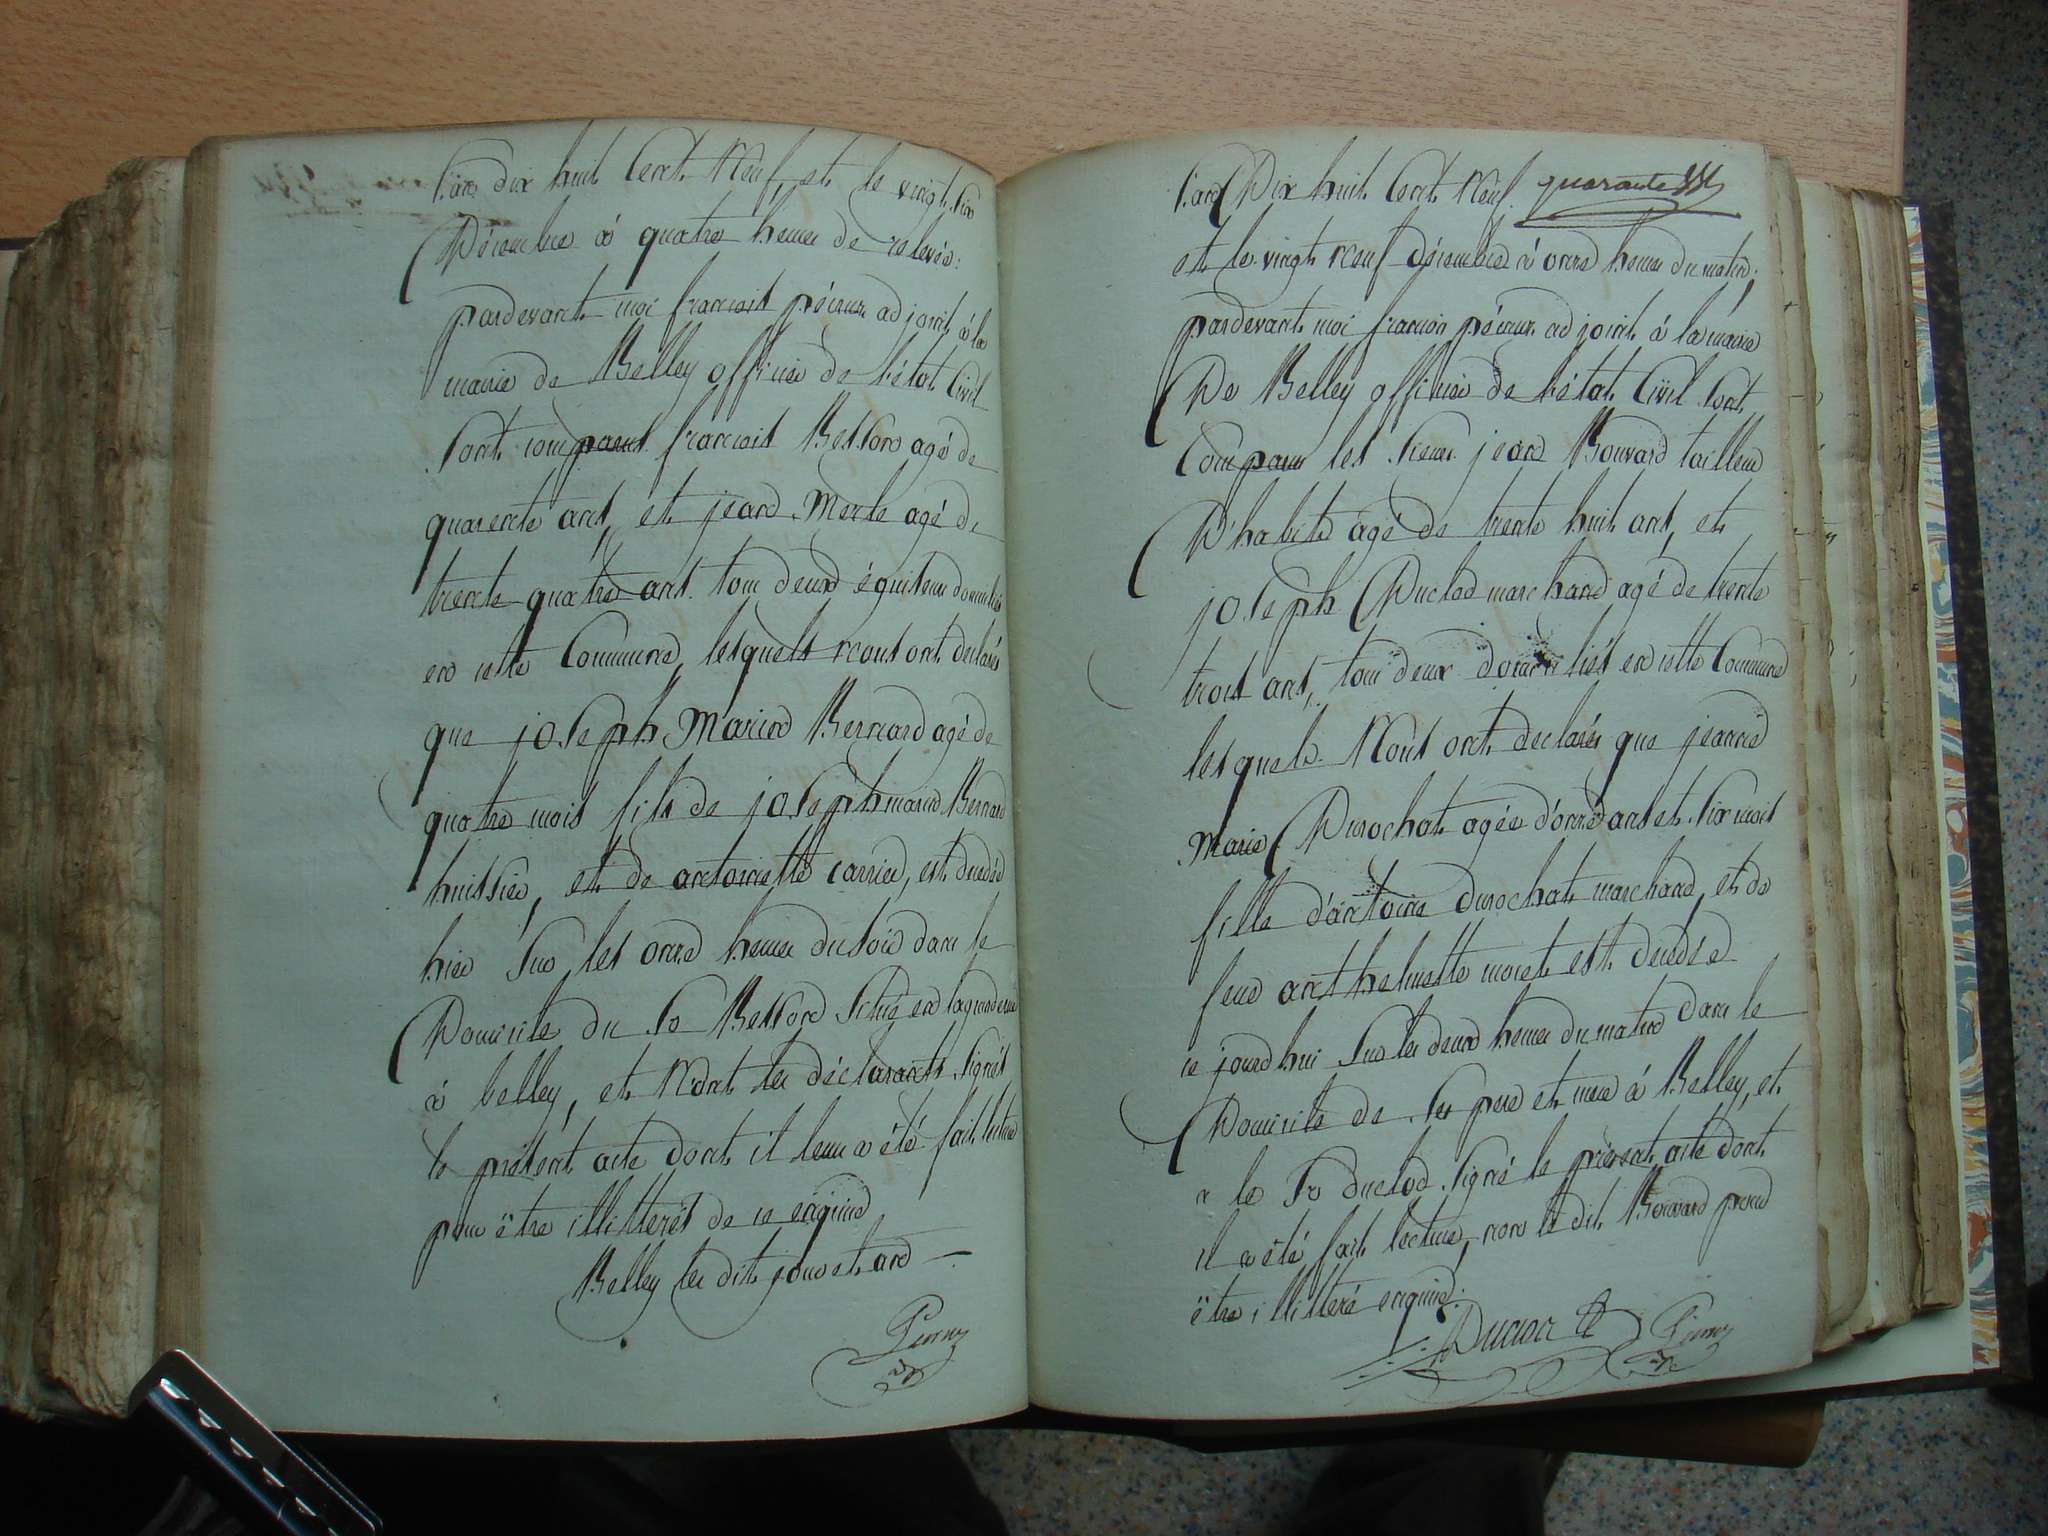 L'an dix huit Cent Neuf, et le vingt six
Décembre à quatre heures de relevée:
pardevant moi francois adjoint à la
mairie de Belley officier de l'état Civil
sont comparus francois Besson agé de
quarente ans, et jean Merle agé de
trente quatre ans tous deux domiciliés
en cette Commune, lesquels nous ont declarés
que joseph Marin Bernard agé de
quatre mois fils de joseph marin Bernard
huissier, et de antoinette carrier, est decedé
hier sur les onze heures du soir dans le
Domicile du Sr Besson situé en la grande rue
à belley, et N'ont les déclarants signés
le présent acte dont il leur a été fait lecture
pour être illitterés de ce enquis
Belley les dits jour et an
L'an Dix huit Cent Neuf. quarante
et le vingt neuf décembre à onze heures du matin;
pardevant moi francois adjoint à la mairie
De Belley officier de l'état Civil sont
Comparus les sieurs jean Bouvard tailleur
D'habits agé de trente huit ans, et
joseph Duclod marchand agé de trente
trois ans, tous deux domiciliés en cette Commune
lesquels Nous ont declarés que jeanne
Marie Durochat agée d'onze ans et six mois
fille d'antoine durochat marchand, et de
feue anthelmette moret est decedée
ce jourd'hui sur les deux heures du matin dans le
Domicile de ses pere et mere à Belley, et
a le Sr duclod signé le présent acte dont
il a été fait lecture, non le dit Bouvard pour
être illitteré enquis.